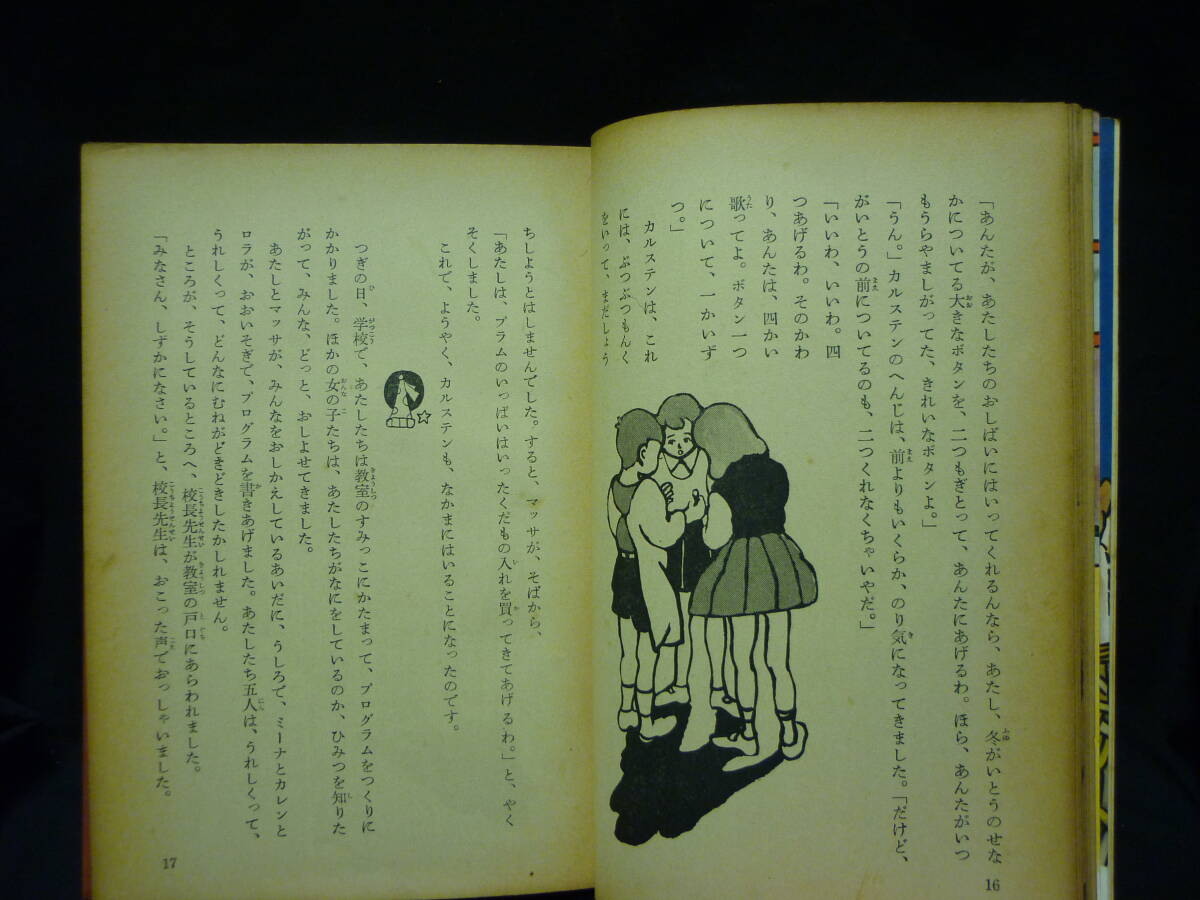 「あんたが、あたしたちのおしばいにはいってくれるんなら、あたし、冬がいとうのせな
かについてる大きなボタンを、二つもぎとって、あんたにあげるわ。ほら、あんたがいつ
もうらやましがってた、きれいなボタンよ。」
「うん。」カルステンのへんじは、前よりもいくらか、のり気になってきました。「だけど、
がいとうの前についてるのも、二つくれなくちゃいやだ。」
「いいわ、いいわ。四
つあげるわ。そのかわ
り、あんたは、四かい
歌ってよ。ボタン一つ
について、一かいず
つ。」
カルステンは、これ
には、ぶつぶつもんく
をいって、まだしょう
16
ちしようとはしませんでした。すると、マッサが、そばから、
「あたしは、プラムのいっぱいはいったくだもの入れを買ってきてあげるわ。」と、やく
そくしました。
これで、ようやく、カルステンも、なかまにはいることになったのです。
つぎの日、学校で、あたしたちは教室のすみっこにかたまって、プログラムをつくりに
かかりました。ほかの女の子たちは、あたしたちがなにをしているのか、ひみつを知りた
がって、みんな、どっと、おしよせてきました。
あたしとマッサが、みんなをおしかえしているあいだに、うしろで、ミーナとカレンと
ロラが、おおいそぎで、プログラムを書きあげました。あたしたち五人は、うれしくって、
うれしくって、どんなにむねがどきどきしたかしれません。
ところが、そうしているところへ、校長先生が教室の戸口にあらわれました。
「みなさん、しずかになさい。」と、校長先生は、おこった声でおっしゃいました。
17